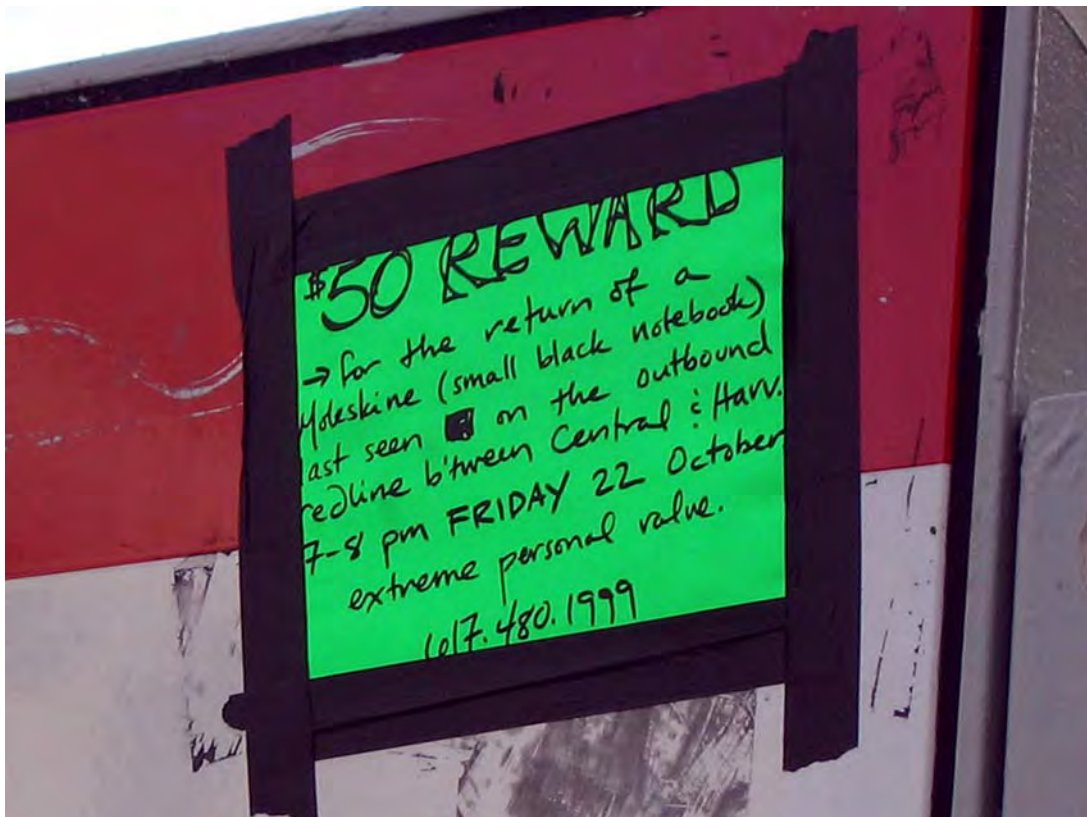 $50 REWARD
→ for the return of a
Moleskine (small black notebook)
last seen on the outbound
redline b'tween Central & Harv.
7-8 pm FRIDAY 22 October
extreme personal value.
617.480.1999